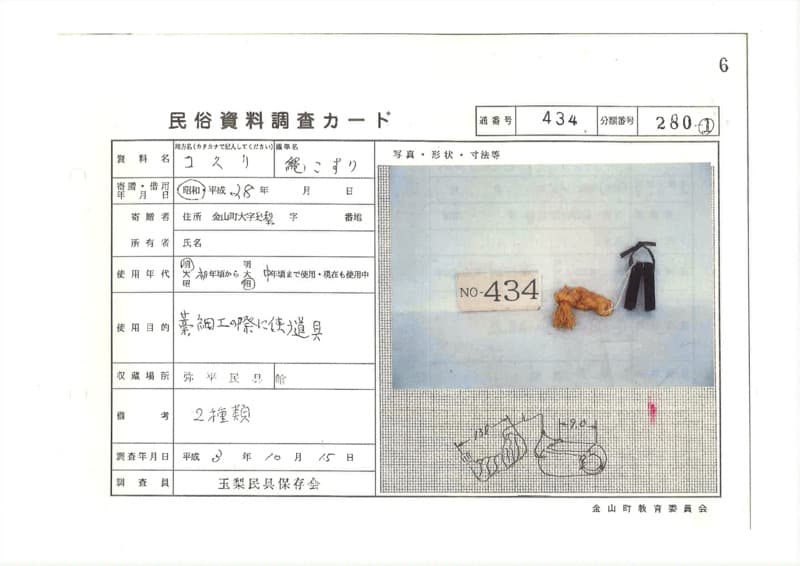 6
民俗資料調査カード
通番号 434 分類番号 280-①
資料名 地方名(カタカナで記入してください) コスリ 標準名 縄こすり
寄贈・借用年月日 昭和・平成 28年 月 日
寄贈者 住所 金山町大字玉梨 字 番地
所有者 氏名
使用年代 明大昭 初年頃から 明大昭 中年頃まで使用・現在も使用中
使用目的 藁細工の際に使う道具
収蔵場所 弥平民具館
備考 2種類
調査年月日 平成 3年 10月 15日
調査員 玉梨民具保存会
写真・形状・寸法等
NO-434
130
9.0
金山町教育委員会